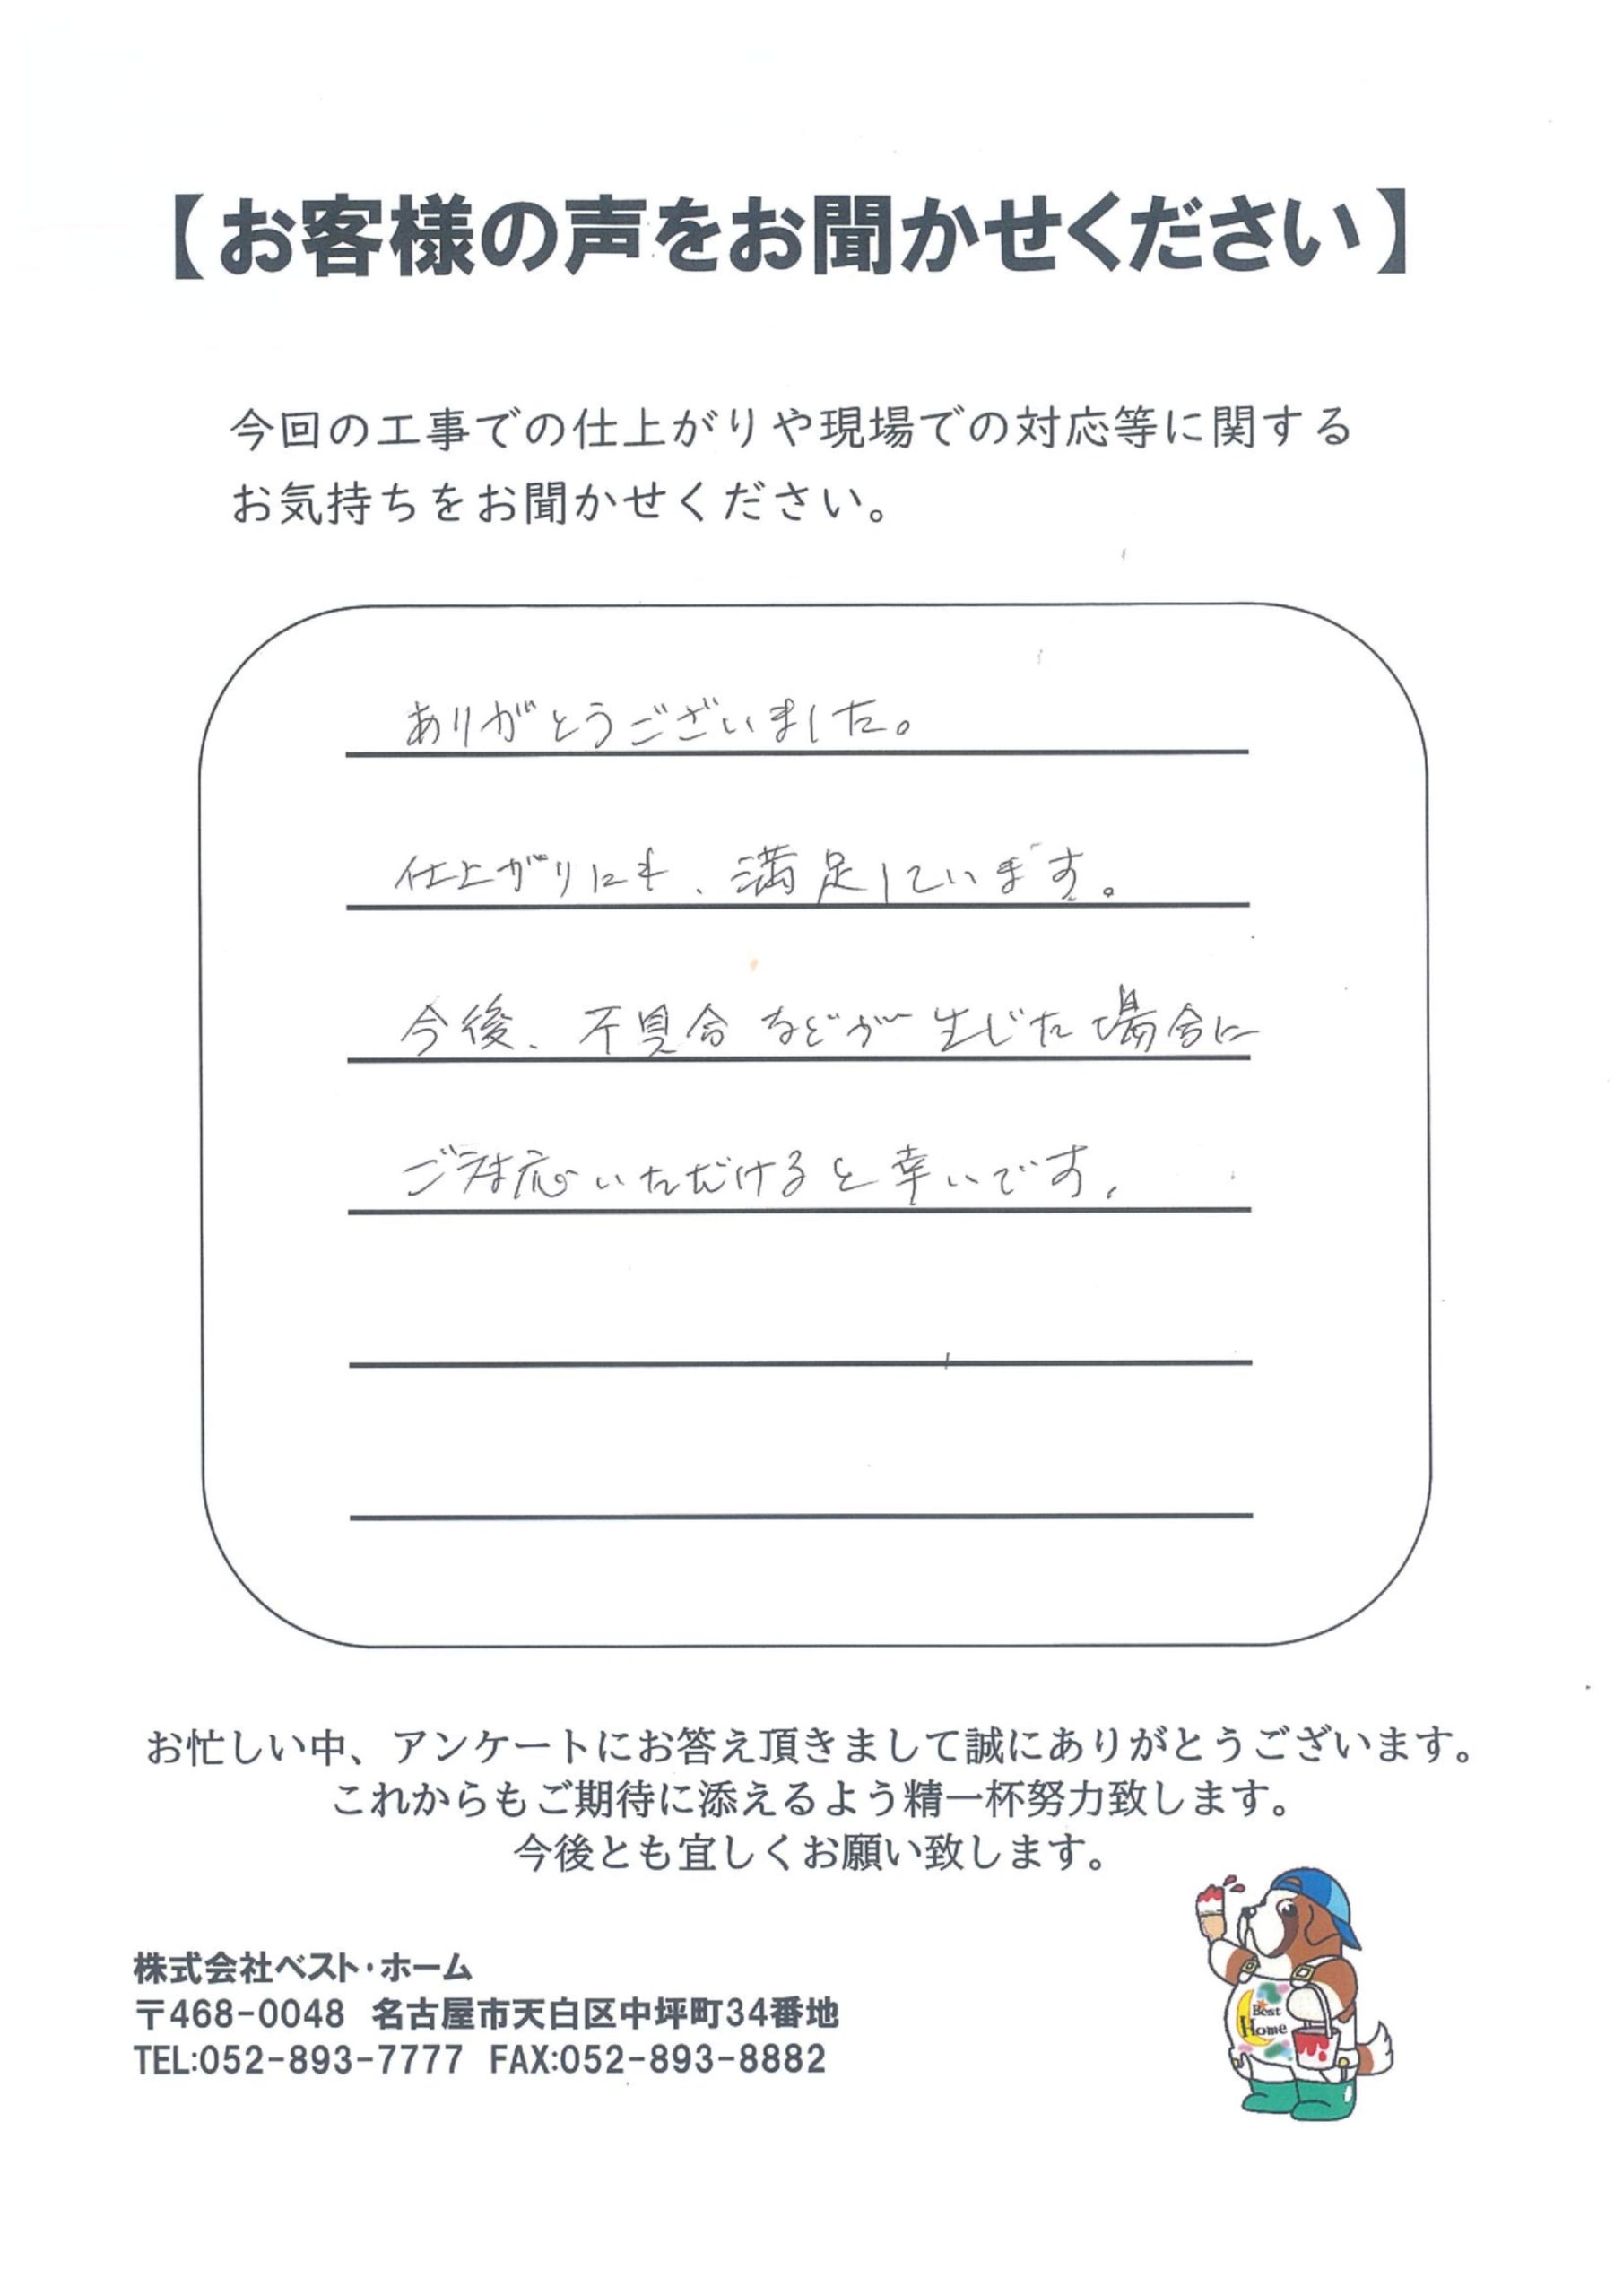 【お客様の声をお聞かせください】
今回の工事での仕上がりや現場での対応等に関する
お気持ちをお聞かせください。
ありがとうございました。
仕上がりにも、満足しています。
今後、不具合などが生じた場合に
ご対応いただけると幸いです。
お忙しい中、アンケートにお答え頂きまして誠にありがとうございます。
これからもご期待に添えるよう精一杯努力致します。
今後とも宜しくお願い致します。
株式会社ベスト・ホーム
〒468-0048 名古屋市天白区中坪町34番地
TEL:052-893-7777 FAX:052-893-8882
Best
Home